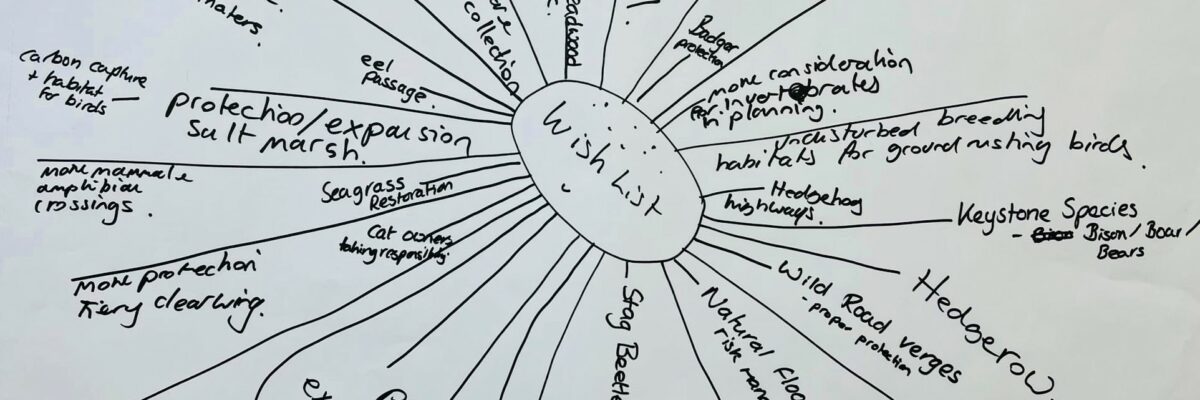 Wish List
eel
passage.
carbon capture
+ habitat
for birds
protection/expansion
salt marsh.
more mammal &
amphibian
crossings.
Seagrass
Restoration
cat owners
taking responsibility
more protection
Fiery clearwing.
collection
Badger
protection
more consideration
for invertebrates
in planning.
undisturbed breeding
habitats for ground nesting birds.
Hedgehog
highways.
Keystone Species
- Bison/Boar/
Bears
Hedgerow
Wild Road verges
- proper protection
Natural floo
risk man
Stag Beetle